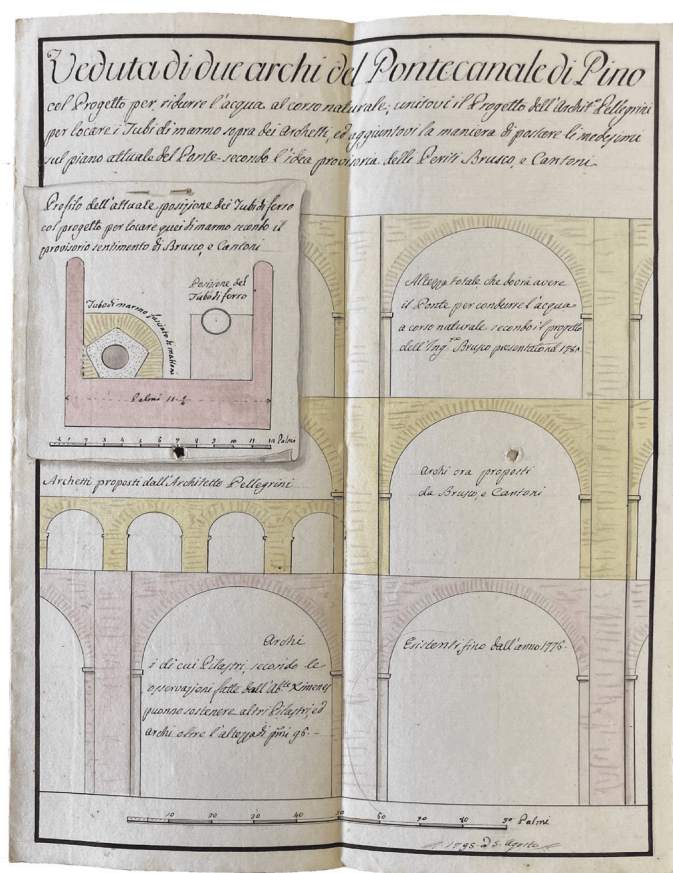 Veduta di due archi del Pontecanale di Pino
col Progetto per ridurre l'acqua al corso naturale; unitovi il Progetto dell'Archit.º Pellegrini
per locare i Tubi di marmo sopra dei Archetti, ed aggiuntovi la maniera di postare li medesimi
sul piano attuale del Ponte secondo l'idea provisoria delli Periti Brusco, e Cantoni
Profilo dell'attuale posizione dei Tubi di ferro
col progetto per locare quei di marmo secondo il
provisorio sentimento di Brusco, e Cantoni
Posizione del
Tubo di ferro
Tubo di marmo fasciato di mattoni
Palmi 11-½
1 2 3 4 5 6 7 8 9 10 11 12 Palmi
Altezza totale che dovrà avere
il Ponte per condurre l'acqua
a corso naturale secondo il progetto
dell'Ing.re Brusco presentato nel
Archi ora proposti
da Brusco, e Cantoni
Archetti proposti dall'Architetto Pellegrini
Archi
i di cui Pilastri, secondo le
osservazioni fatte dall'Ab.te Ximenes
puonno sostenere altri Pilastri, ed
Archi oltre l'altezza di pmi 96.-
Esistenti fino dall'anno 1776
10 20 30 40 50 60 70 80 90 Palmi
1795 a 5. Agosto